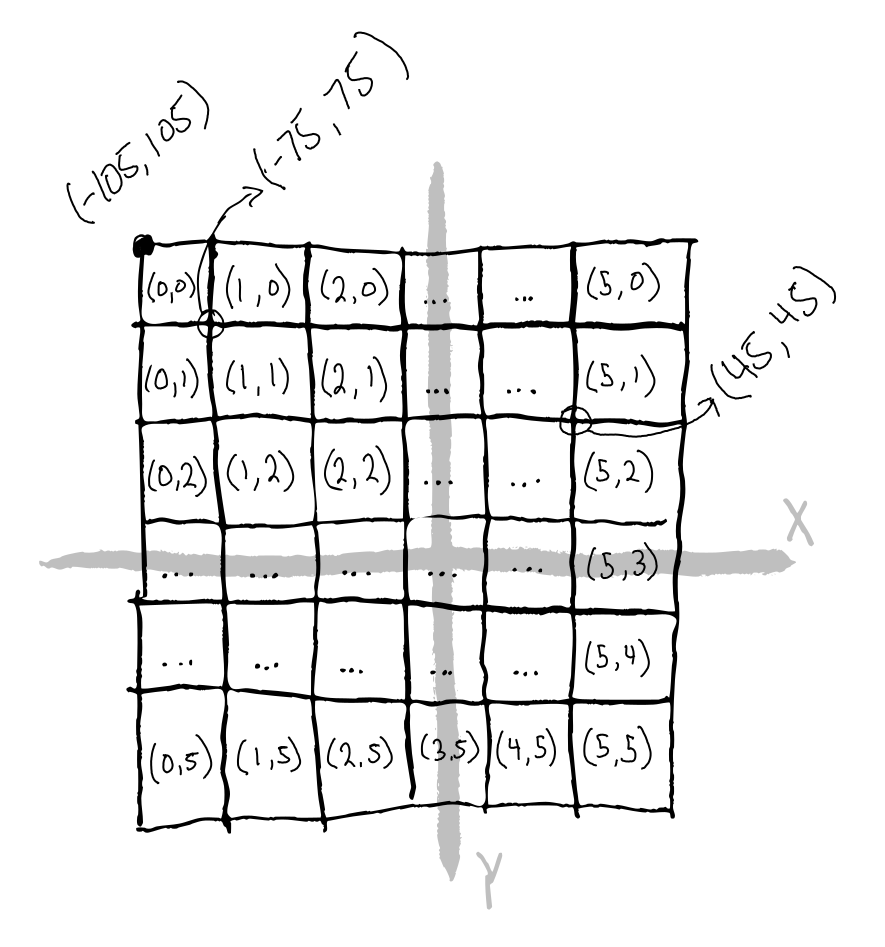 (-105,105)
(-75,75)
(0,0) (1,0) (2,0) ... ... (5,0)
(45,45)
(0,1) (1,1) (2,1) ... ... (5,1)
(0,2) (1,2) (2,2) ... ... (5,2)
X
... ... ... ... ... (5,3)
... ... ... ... ... (5,4)
(0,5) (1,5) (2,5) (3,5) (4,5) (5,5)
Y